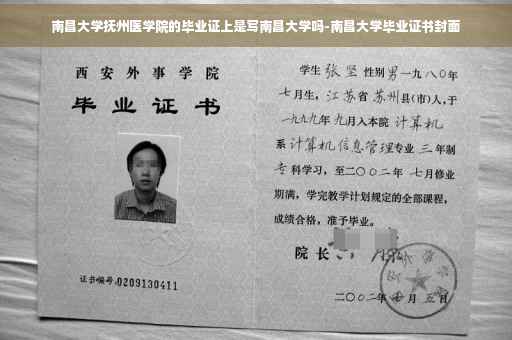 南昌大学抚州医学院的毕业证上是写南昌大学吗-南昌大学毕业证书封面
西安外事学院
毕业证书
证书编号:0209130411
学生 张坚 性别 男 一九八〇年
七月生, 江苏省 苏州县(市)人,于
一九九九年 九月入本院 计算机
系 计算机信息管理专业 三 年制
专科学习,至二〇〇二年 七月修业
期满,学完教学计划规定的全部课程,
成绩合格,准予毕业。
院长
二〇〇二年 七月 五日